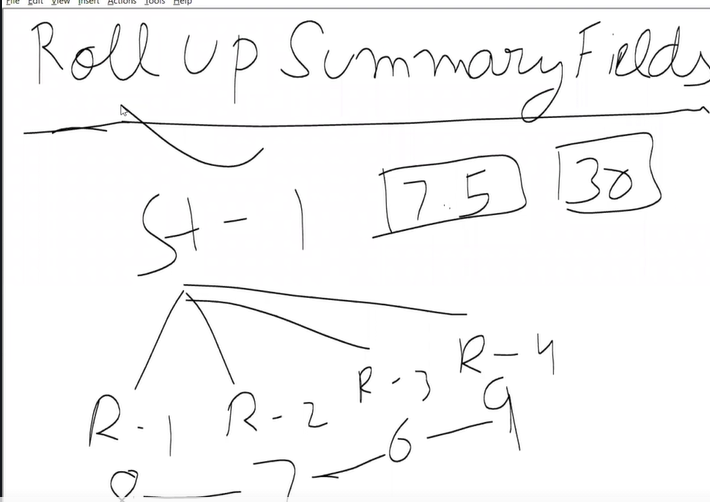 File Edit View Insert Actions Tools Help
Roll Up Summary Fields
St - 1 7.5 30
R - 1 R - 2 R - 3 R - 4
8 7 6 9